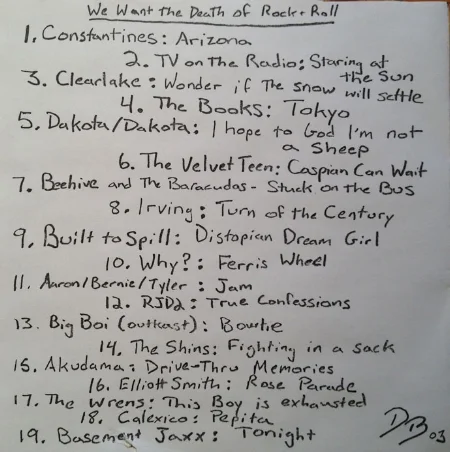 We Want the Death of Rock + Roll
1. Constantines: Arizona
2. TV on the Radio: Staring at
the Sun
3. Clearlake: Wonder if The snow will settle
4. The Books: Tokyo
5. Dakota/Dakota: I hope to God I'm not
a Sheep
6. The Velvet Teen: Caspian Can Wait
7. Beehive and The Baracudas - Stuck on the Bus
8. Irving: Turn of the Century
9. Built to Spill: Distopian Dream Girl
10. Why?: Ferris Wheel
11. Aaron/Bernie/Tyler: Jam
12. RJD2: True Confessions
13. Big Boi (outkast): Bowtie
14. The Shins: Fighting in a sack
15. Akudama: Drive-Thru Memories
16. Elliott Smith: Rose Parade
17. The Wrens: This Boy is exhausted
18. Calexico: Pepita
19. Basement Jaxx: Tonight
DB 03